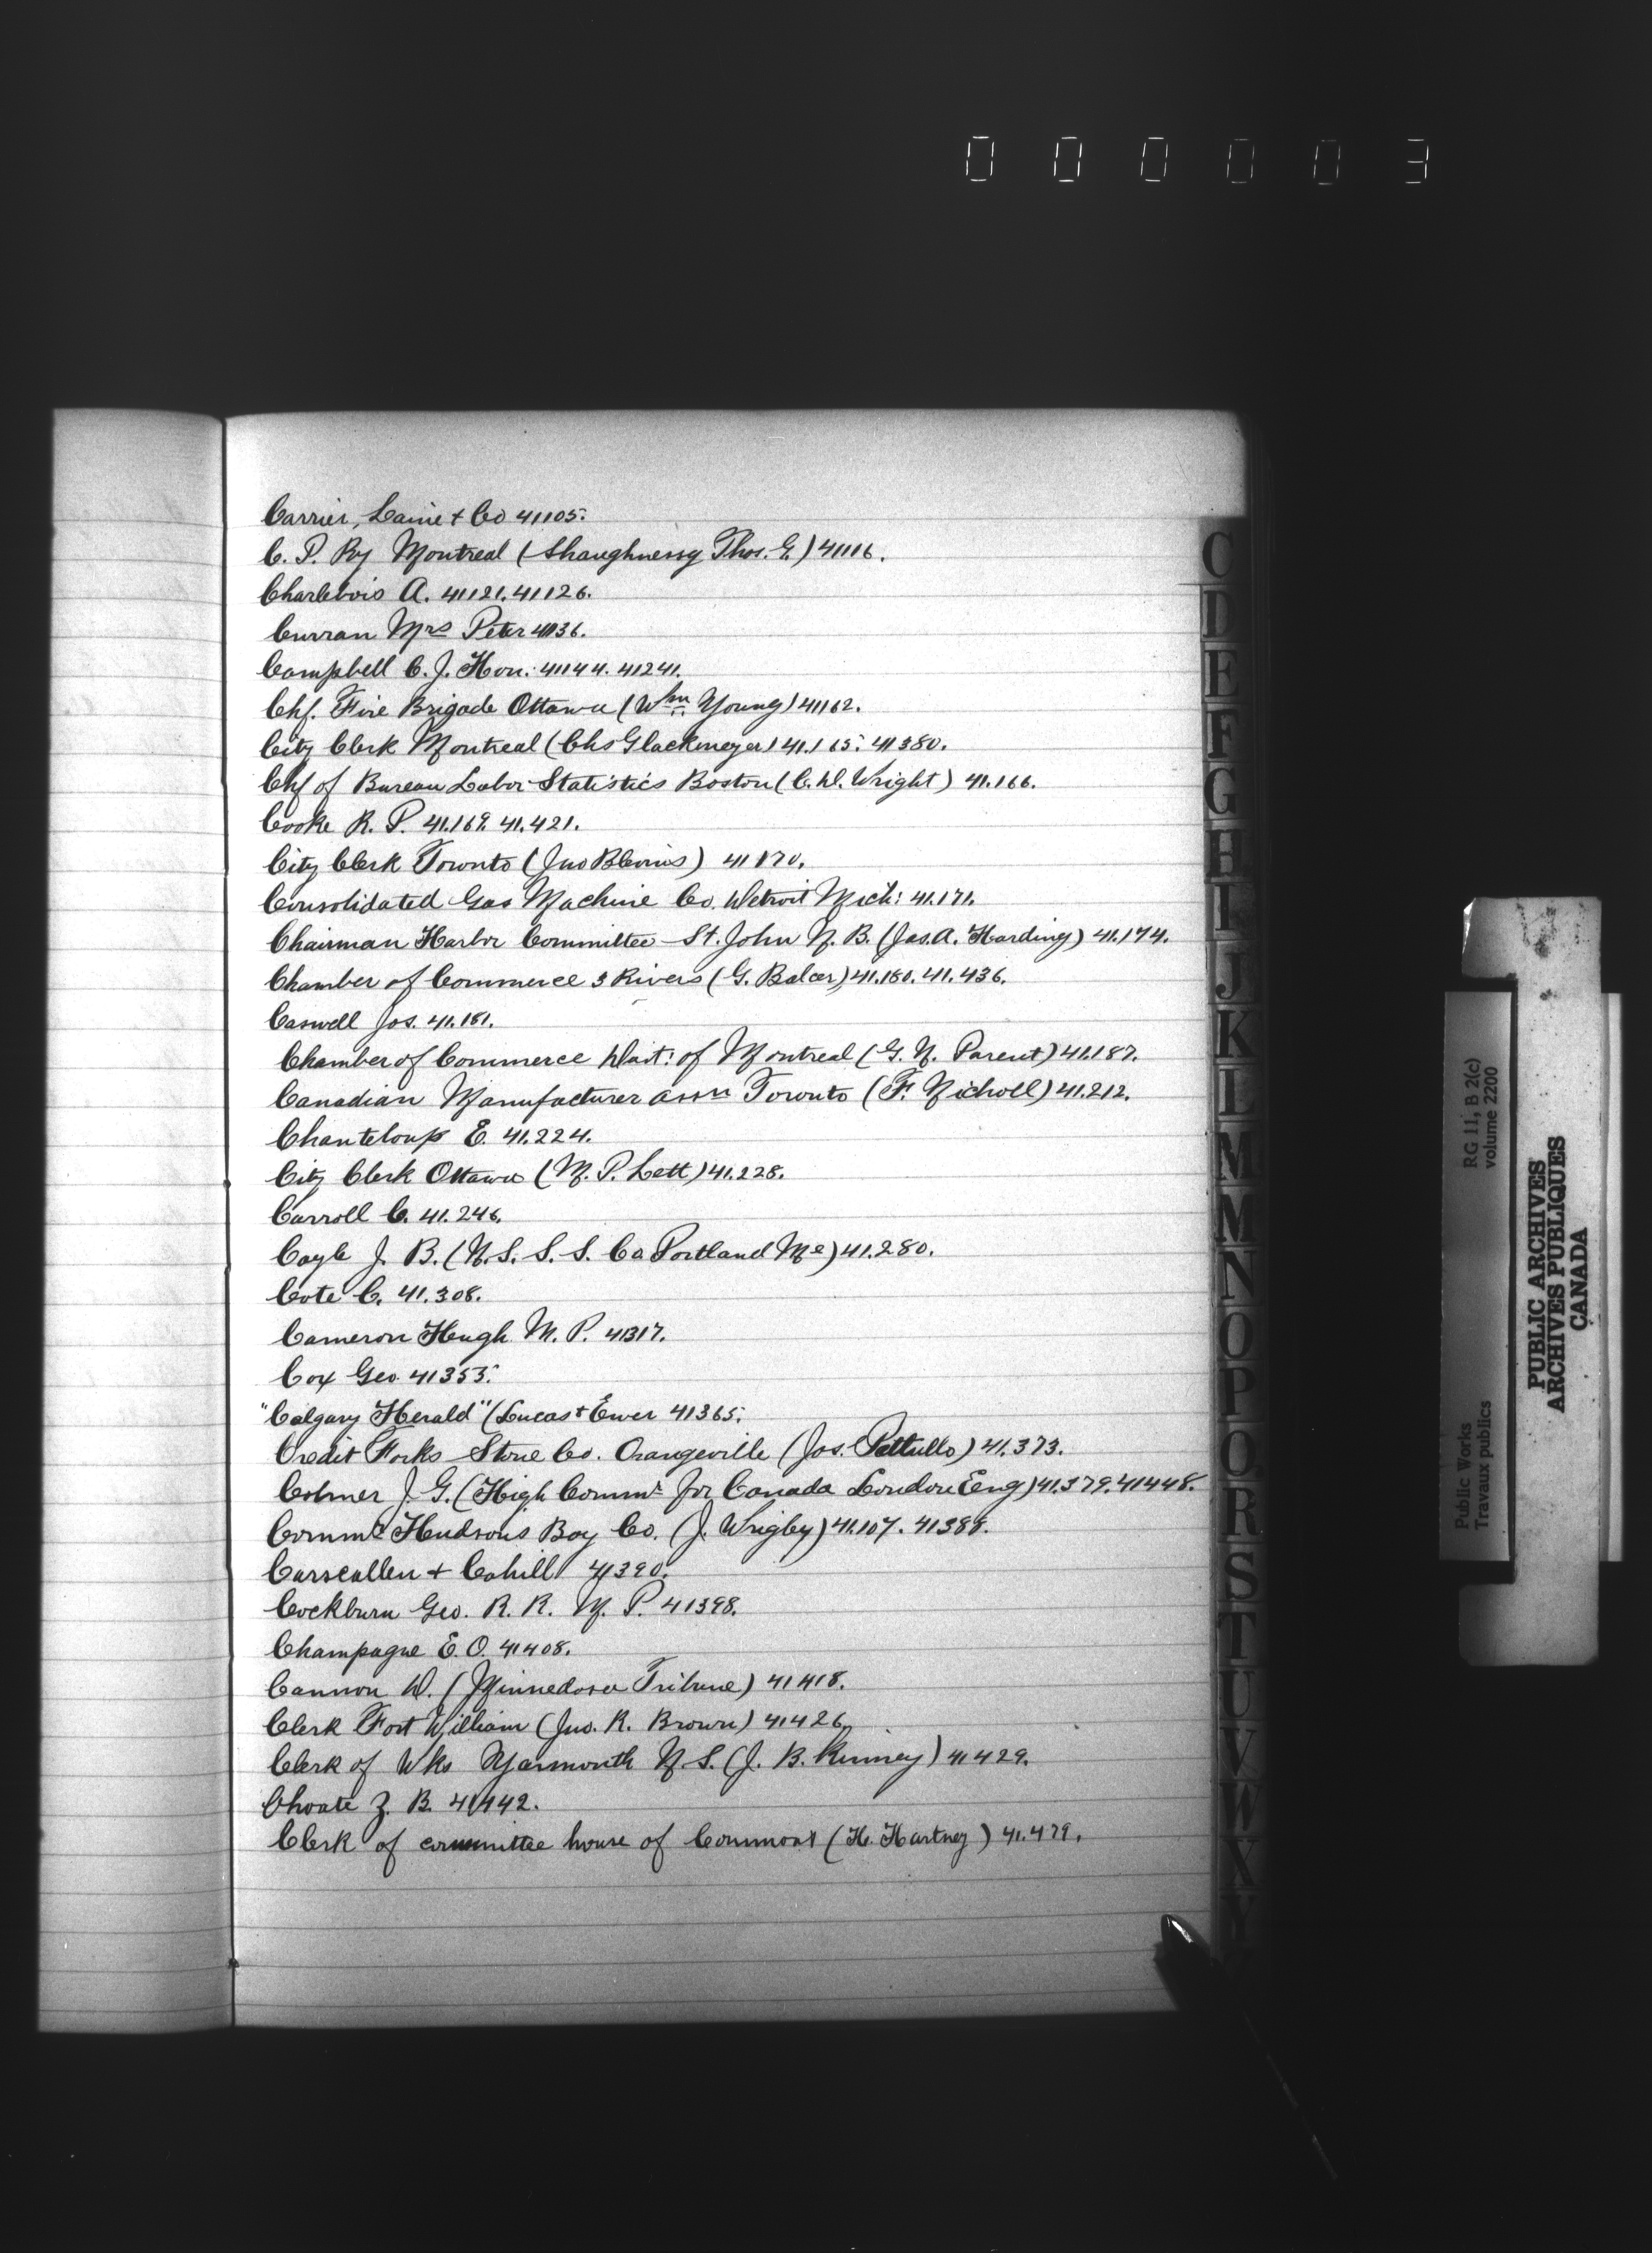 000003
Carrier, Laine + Co 41105.
C. P. Ry Montreal (Shaughnessy Thos. G.) 41116.
Charlebois A. 41121. 41126.
Curran Mrs Peter 41136.
Campbell C. J. Hon: 41144. 41241.
Chf. Fire Brigade Ottawa (Wm Young) 41162.
City Clerk Montreal (Chs Glackmeyer) 41.165. 41380.
Chf of Bureau Labor Statistics Boston (C. D. Wright) 41.166.
Cooke R. P. 41.169. 41.421.
City Clerk Toronto (Jno Blevins) 41170.
Consolidated Gas Machine Co. Detroit Mich: 41.171.
Chairman Harbor Committee St. John N. B. (Jas. A. Harding) 41.174.
Chamber of Commerce 3 Rivers (G. Balcer) 41.180. 41.436.
Caswell Jos. 41.181.
Chamber of Commerce Dist: of Montreal (G. N. Parent) 41.187.
Canadian Manufacturer assn Toronto (F. Nicholl) 41.212.
Chanteloup E. 41.224.
City Clerk Ottawa (W. P. Lett) 41.228.
Carroll C. 41.246.
Coyle J. B. (N. S. S. S. Co Portland Me) 41.280.
Cote C. 41.308.
Cameron Hugh M. P. 41317.
Cox Geo. 41353.
"Calgary Herald" (Lucas + Ewer 41365.
Credit Forks Stone Co. Orangeville (Jas. Pattullo) 41.373.
Colmer J. G. (High Commr for Canada London Eng) 41.379. 41448.
Commr Hudsons Bay Co. (J. Wrigley) 41.107. 41388.
Carscallen + Cahill 41390.
Cockburn Geo. R. R. M. P. 41398.
Champagne E. O. 41408.
Cannon D. (Minnedosa Tribune) 41418.
Clerk Fort William (Jno. R. Brown) 41426.
Clerk of Wks Yarmouth N. S. (J. B. Kinney) 41429.
Choate Z. B. 41442.
Clerk of committee house of Commons (H. Hartney) 41.479.
C
D
E
F
G
H
I
J
K
L
M
M
N
O
P
Q
R
S
T
U
V
W
X
Y
Public Works
Travaux publics
RG 11, B 2(c)
volume 2200
PUBLIC ARCHIVES
ARCHIVES PUBLIQUES
CANADA